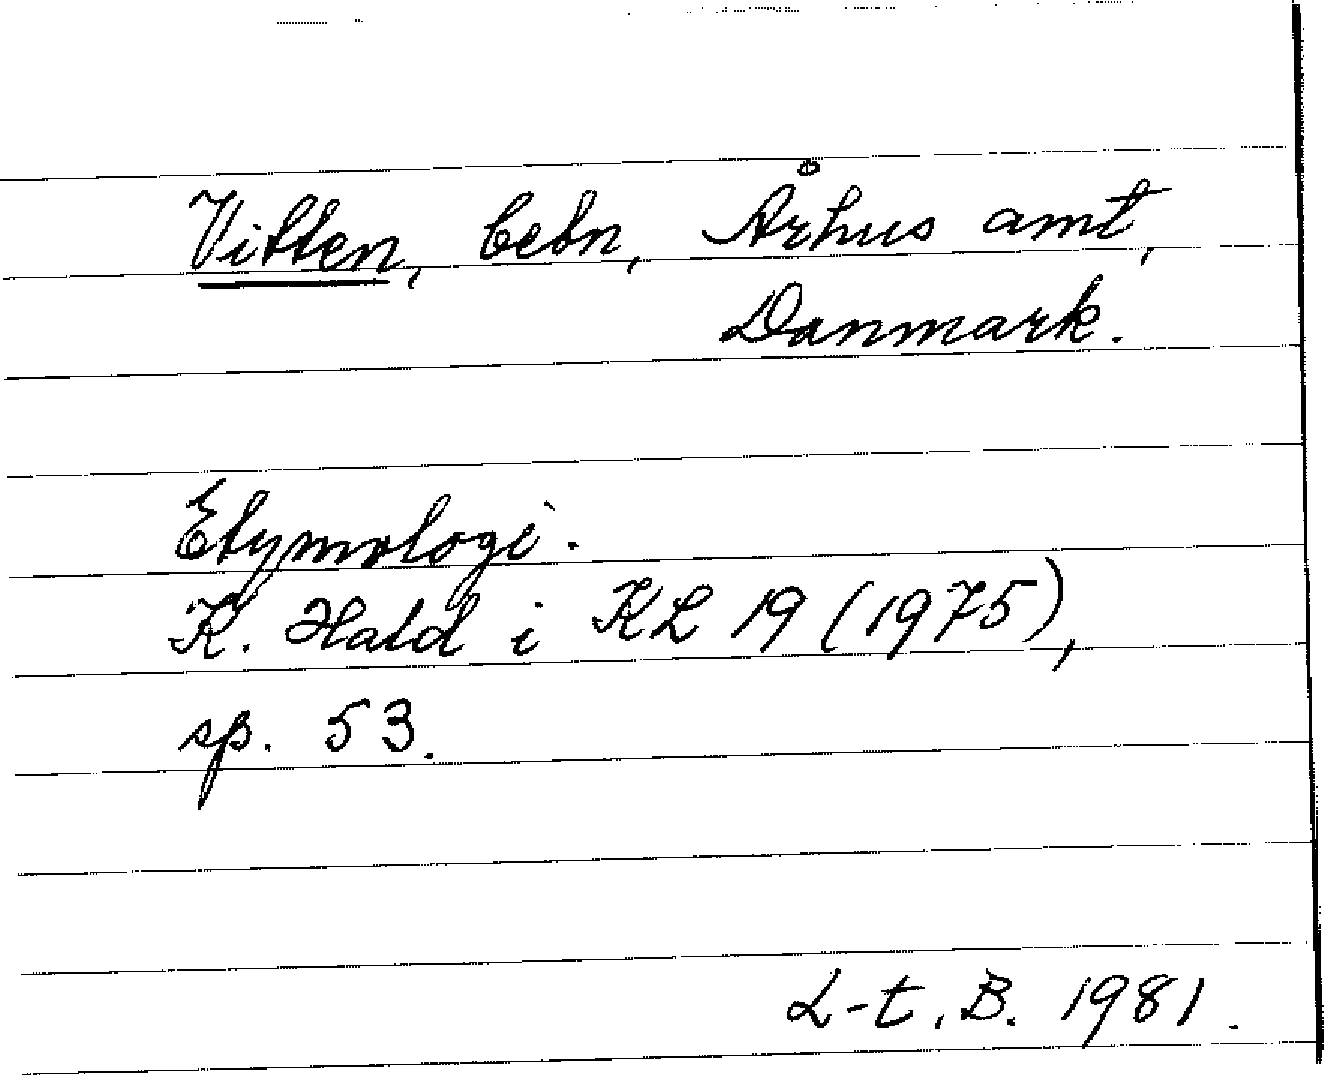 Vitten, bebn, Århus amt,
Danmark.
Etymologi.
K. Hald i KL 19 (1975),
sp. 53.
L-t, B. 1981.